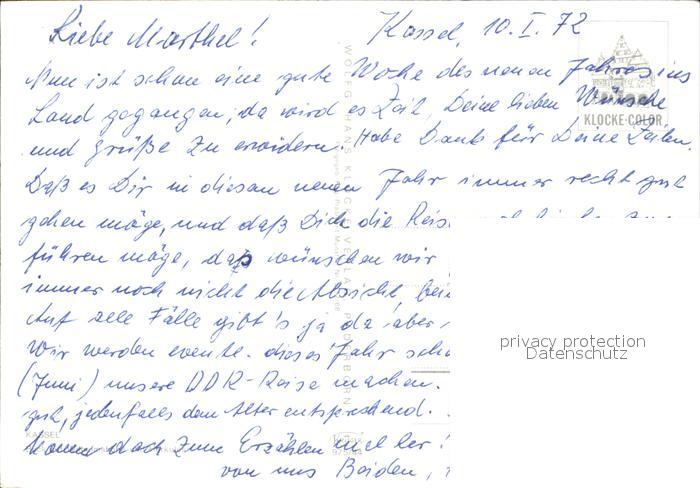 Liebe Marthel! Kassel, 10.I.72
Nun ist schon eine gute Woche des neuen Jahres ins
Land gegangen, da wird es Zeit, Deine lieben Wünsche
KLOCKE-COLOR
und Grüße zu erwidern. Habe Dank für Deine Zeilen.
Daß es Dir in diesem neuen Jahr immer recht gut
gehen möge, und daß Dich die Reis
führen möge, das wünschen wir
immer noch nicht die Absicht, bei
Auf alle Fälle gibt's ja da aber
Wir werden eventl. dieses Jahr scho
(Juni) unsere DDR-Reise machen.
gut, jedenfalls dem Alter entsprechend.
KASSEL
Komm doch zum Erzählen mal her!
von uns Beiden,
privacy protection
Datenschutz